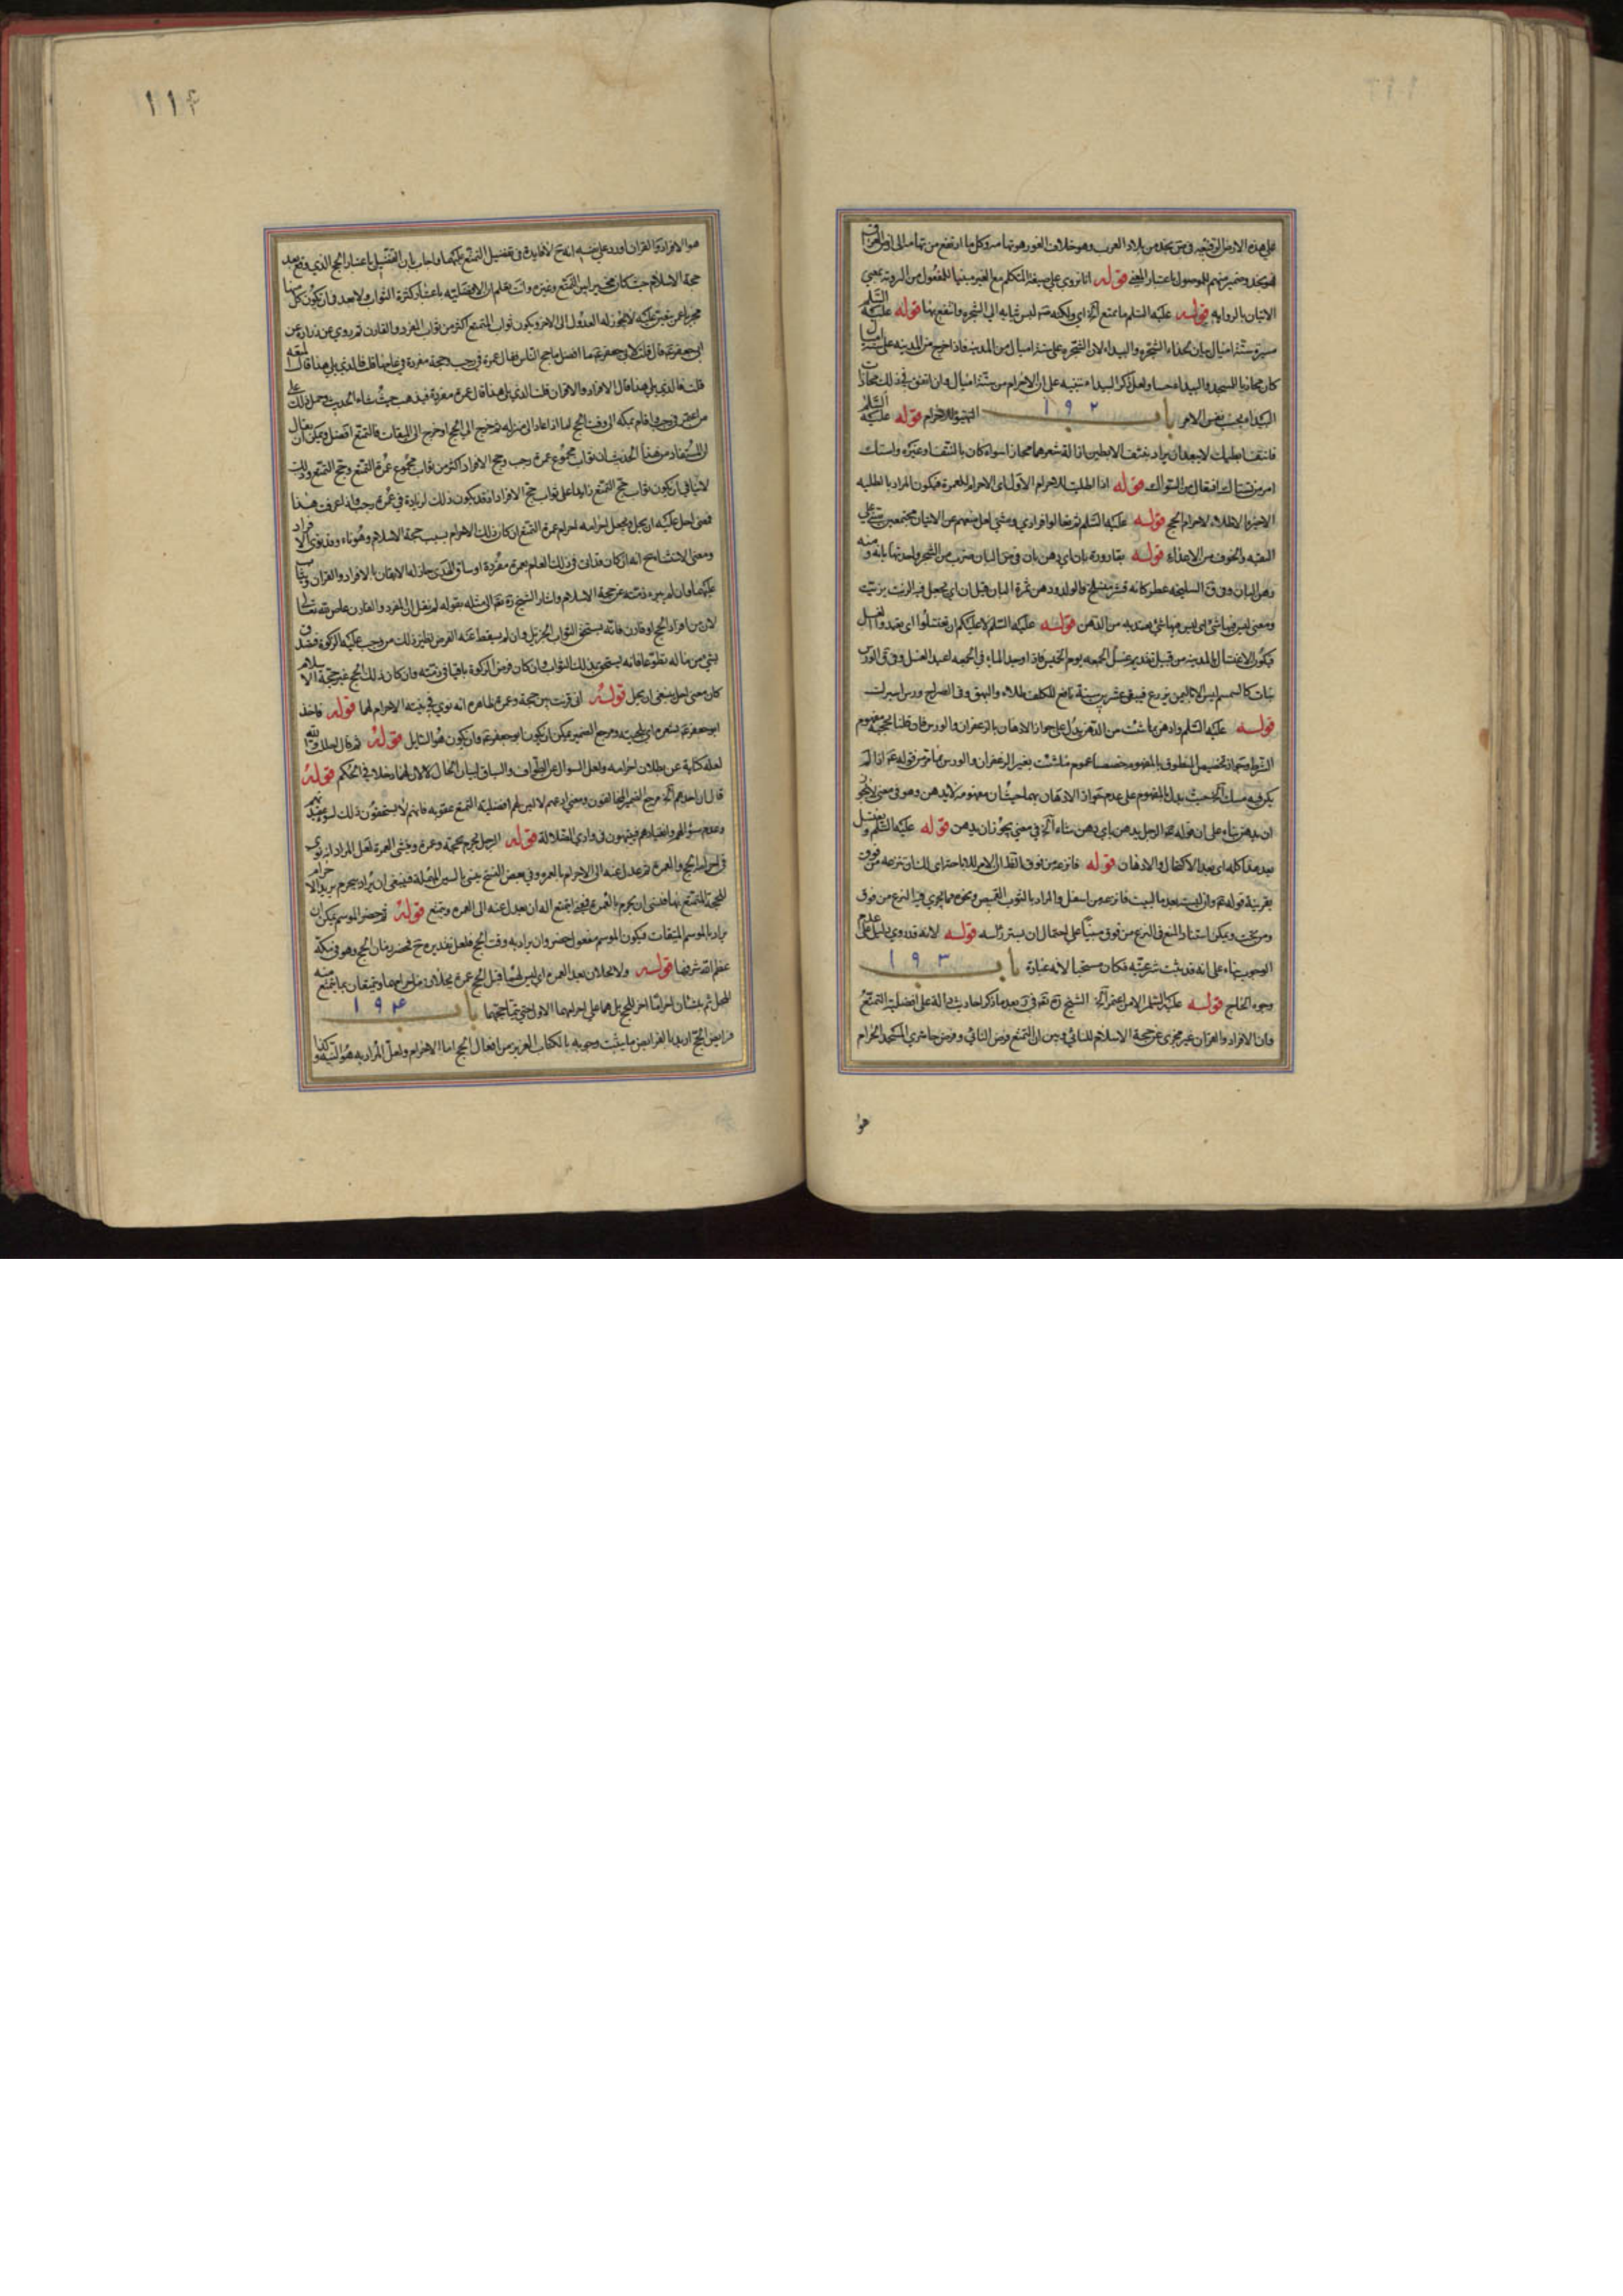 على هذه الارض المرتفعه في ق نجد من بلاد العرب وهو خلاف الغور هو تهامه وكل ما ارتفع من تهامه الى ارض العراق
فهو نجد وضمير منهم للموصول باعتبار المعنى قوله انا نروي على صيغة المتكلم مع الغير مبنيا للمفعول من الروية بمعنى
الاتيان بالرواية قوله عليه السلم ما تمتع اي ولكنه لبس ثيابه الى الشجره وانتفع بها قوله عليه السلم
مسيرة ستة اميال بيان بحذاء الشجره والبيداء لان الشجره على ستة اميال من المدينه فاذا خرج من المدينه على ستة اميال
كان محاذيا للمسجد والبيداء معا ولعل ذكر البيدا تنبيه على ان الاحرام من ستة اميال وان اتفق في ذلك محاذاة
البيداء بحسب نفس الامر باب ١٩٢ التهيؤ للاحرام قوله عليه السلم
فانتف ابطيك لا يبعد ان يراد بنتف الابطين ازالة شعرهما مجازا سواء كان بالنتف او غيره واستك
امر من تستاك افتعال من السواك قوله اذا اطليت للاحرام الاول اى الاحرام للعمرة فيكون المراد بالطليه
الاخيرة الاطلاء لاحرام الحج قوله عليه السلم
التقيه والخوف من الاعداء قوله بقارورة بان اي دهن بان وفي ص البان ضرب من الشجر واحدتها بانة ومنه
دهن البان وفي ق السليخه عطر كانه قشر منسلخ والولد ودهن ثمرة البان قبل ان
ومعنى ليس فيها شئ اى ليس فيها شئ يعتد به من الدهن قوله عليه السلم لا عليكم ان تغتسلوا اى بعد والغسل
فيكون الاغتسال بالمدينه من قبيل تقديم غسل الجمعه يوم الخميس فاذا وجد الماء في الجمعه اعيد الغسل وفي ق الورس
نبات كالسمسم ليس الا باليمن يزرع فيبقى عشرين سنة نافع للكلف طلاء والبهق وفي الصراح ورس اسپرك
قوله عليه السلم وادهن بما شئت من الدهن يدل على جواز الادهان بالزعفران والورس فان قلنا بحجية مفهوم
يكن فيه مسك حيث يدل بالمفهوم على عدم جواز الادهان بهما حيث ان مفهومه لا يدهن وهو في معنى لا يجوز
ان يدهن بناء على ان قوله الرجل يدهن باي دهن شاء في معنى يجوز ان يدهن قوله عليه السلم ويغتسل
بعد هذا كله اى بعد الاكتحال والادهان قوله فانزعه من فوق
بقرينة قوله وان لبست بعد ما لبيت فانزعه من اسفل والمراد بالثوب القميص ونحوه مما يجري فيه النزع من فوق
ومن تحت ويمكن استناد المنع في النزع من فوق مبنيا على احتمال ان يستر رأسه قوله لانه قد روي
الوجوب بناء على انه قد ثبت شرعيته فكان مستحبا لانه عبادة باب ١٩٣
وجوه الحاج قوله عليه السلم الشيخ ره بعد ما ذكر احاديث دالة على افضلية التمتع
وان الافراد والقران غير مجزى عن حجة الاسلام للنائي وبين ان التمتع فرض النائي وفرض حاضري المسجد الحرام
هو
١١٤
هو الافراد والقران اورد على نفسه انه ح لا فايدة في تفضيل التمتع عليهما واجاب بان التفضيل باعتبار الحج الذي وقع بعد
حجة الاسلام حيث كان مخيرا بين التمتع وغيره وانت تعلم ان الافضلية باعتبار كثرة الثواب ولا بعد في ان يكون كل منها
مجزيا عن غير عليه لا يجوز له العدول الى الاخر ويكون ثواب المتمتع اكثر من ثواب المفرد والقارن ثم روي عن زرارة عن
ابى جعفر قال قلت لابى جعفر ما افضل ما حج الناس فقال عمرة في رجب وحجة مفردة في عامها قلت فالذي يلي هذا قال المتعه
قلت فالذي يلي هذا قال الافراد والاقران قلت الذي يلي هذا قال عمرة مفردة فيذهب حيث شاء الحديث وحمل ذلك على
من اعتمر في رجب واقام بمكه الى وقت الحج اما اذا عاد الى منزله ثم خرج الى الحج او خرج الى الميقات فالتمتع افضل ويمكن ان يقال
ان المستفاد من هذا الحديث ان ثواب مجموع عمرة رجب وحج الافراد اكثر من ثواب مجموع عمرة التمتع وحج التمتع وذلك
لا ينافى ان يكون ثواب حج التمتع زايدا على ثواب حج الافراد اذ قد يكون ذلك لزيادة في عمرة رجب فاذا عرفت هذا
فمعنى احل عليه ان يحل ويجعل احرامه احرام عمرة التمتع ان كان ذلك الاحرام بسبب حجة الاسلام وهو ناء وقد نوى الافراد
ومعنى الا ان يشاء ح انه ان كان قد اتى في ذلك العام بعمرة مفردة او ساق الهدى جاز له الاتيان بالافراد والقران ويثاب
عليهما وان لم يبرء ذمته عن حجة الاسلام واشار الشيخ ره الى مثله بقوله لم نقل ان المفرد والقارن عاص لله تعالى
لان من افراد الحج او قارن فانه يستحق الثواب الجزيل وان لم يسقط عنه الفرض نظير ذلك من وجب عليه الزكوة فتصدق
بشئ من ماله تطوعا فانه يستحق بذلك الثواب وان كان فرض الزكوة باقيا في ذمته وان كان ذلك الحج غير حجة الاسلام
كان معنى احل ينبغي ان يحل قوله انى قرنت بين حجة وعمرة ظاهره انه نوي في نيته الاحرام لهما قوله فاخذ
ابو جعفر مرجع الضمير يمكن ان يكون ابو جعفر وان يكون هو السايل قوله ثم قال
لعله كناية عن بطلان احرامه ولعل السوال عن الطواف والسياق لبيان الحال لا لان لهما دخلا في الحكم قوله
وعدم سؤالهم وانقيادهم فيتيهون في وادي الضلالة قوله الرجل يحرم بحجة وعمرة وينشى العمرة لعل المراد انه نوى
في احرامه الحج والعمرة ثم عدل عنه الى الاحرام بالعمره وفي بعض النسخ ينسى بالسين المهملة فينبغى ان يراد بيحرم يريد الاحرام
للحجة المتمتع بها فنسى ان يحرم بالعمرة قوله ثم حضر الموسم يمكن ان
يراد بالموسم الميقات فيكون الموسم مفعول حضر وان يراد به وقت الحج فلعل تقديره ح فحضر زمان الحج وهو في مكة
عظم الله شرفها قوله ولا يحلان بعد العمرة
المحل ثم ينشئان احراما اخر للحج بل هما على احرامهما الاول حتى يتما حجتهما باب ١٩٤
فرايض الحج اريد بالفرايض ما يثبت وجوبه بالكتاب العزيز من افعال الحج اما الاحرام ولعل المراد به هو النية